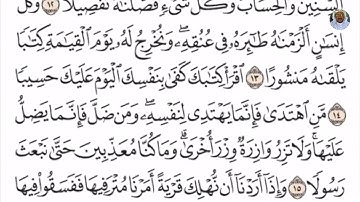 ٱلسِّنِينَ وَٱلْحِسَابَ وَكُلَّ شَىْءٍ فَصَّلْنَٰهُ تَفْصِيلًا ١٢ وَكُلَّ
إِنسَٰنٍ أَلْزَمْنَٰهُ طَٰٓئِرَهُۥ فِى عُنُقِهِۦ وَنُخْرِجُ لَهُۥ يَوْمَ ٱلْقِيَٰمَةِ كِتَٰبًا
يَلْقَىٰهُ مَنشُورًا ١٣ ٱقْرَأْ كِتَٰبَكَ كَفَىٰ بِنَفْسِكَ ٱلْيَوْمَ عَلَيْكَ حَسِيبًا
١٤ مَّنِ ٱهْتَدَىٰ فَإِنَّمَا يَهْتَدِى لِنَفْسِهِۦ وَمَن ضَلَّ فَإِنَّمَا يَضِلُّ
عَلَيْهَا وَلَا تَزِرُ وَازِرَةٌ وِزْرَ أُخْرَىٰ وَمَا كُنَّا مُعَذِّبِينَ حَتَّىٰ نَبْعَثَ
رَسُولًا ١٥ وَإِذَآ أَرَدْنَآ أَن نُّهْلِكَ قَرْيَةً أَمَرْنَا مُتْرَفِيهَا فَفَسَقُوا۟ فِيهَا